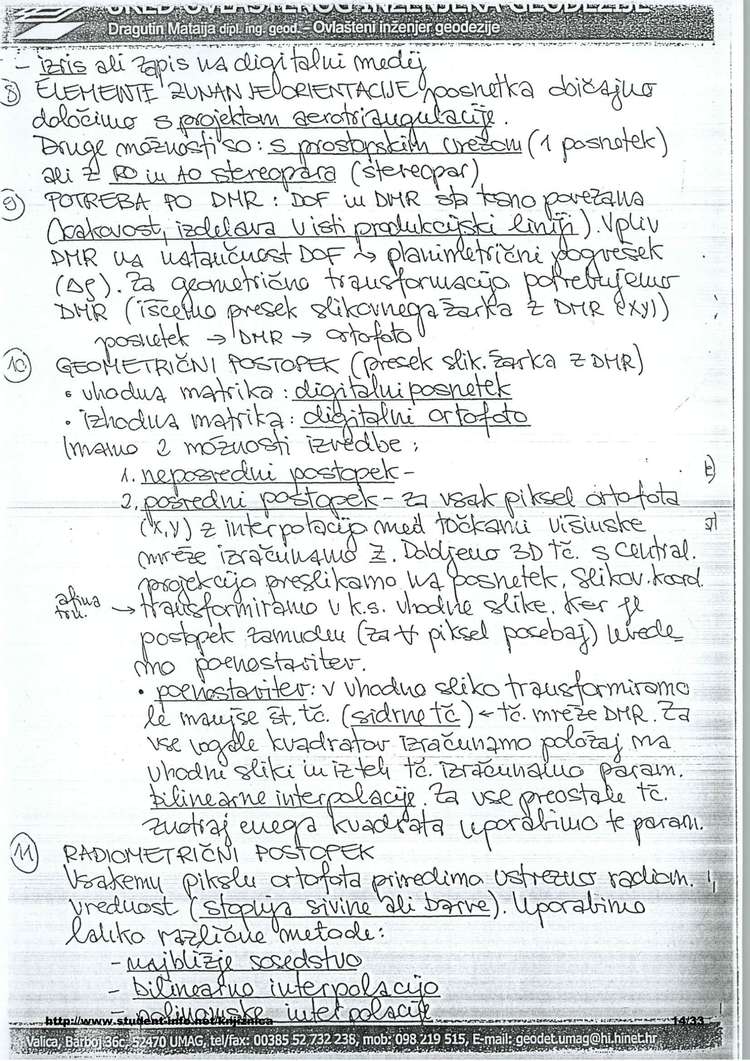 URED OVLAŠTENOG INŽENJERA GEODEZIJE
Dragutin Mataija dipl. ing. geod. – Ovlašteni inženjer geodezije
- izris ali zapis na digitalni medij
8 ELEMENTE ZUNANJE ORIENTACIJE posnetka običajno
določimo s projektom aerotriangulacije.
Druge možnosti so: s prostorskim urezom (1 posnetek)
ali z RO in AO stereopara (stereopar)
9 POTREBA PO DMR: DOF in DMR sta tesno povezana
(kakovost, izdelava v isti produkcijski liniji). Vpliv
DMR na natančnost DOF → planimetrični pogrešek
(Δρ). Za geometrično transformacijo potrebujemo
DMR (iščemo presek slikovnega žarka z DMR (xy))
posnetek → DMR → ortofoto
10 GEOMETRIČNI POSTOPEK (presek slik. žarka z DMR)
• vhodna matrika: digitalni posnetek
• izhodna matrika: digitalni ortofoto
Imamo 2 možnosti izvedbe:
1. neposredni postopek -
2. posredni postopek - za vsak piksel ortofota
(x,y) z interpolacijo med točkami višinske
mreže izračunamo Z. Dobljeno 3D tč. s central.
projekcijo preslikamo na posnetek. Slikov. koord.
afina tra. → transformiramo v k.s. vhodne slike. Ker je
postopek zamuden (za ∀ piksel posebaj) uvede-
mo poenostavitev.
• poenostavitev: v vhodno sliko transformiramo
le manjše št. tč. (sidrne tč) ← tč. mreže DMR. Za
vse vogale kvadratov izračunamo položaj na
vhodni sliki in iz teh tč. izračunamo param.
bilinearne interpolacije. Za vse preostale tč.
znotraj enega kvadrata uporabimo te param.
11 RADIOMETRIČNI POSTOPEK
Vsakemu pikslu ortofota priredimo ustrezno radiom.
vrednost (stopnja sivine ali barve). Uporabimo
lahko različne metode:
- najbližje sosedstvo
- bilinearno interpolacijo
- polinomske interpolacije
http://www.student-info.net/knjiznica
14/33
Valica, Barboj 36c, 52470 UMAG, tel/fax: 00385 52 732 238, mob: 098 219 515, E-mail: geodet.umag@hi.hinet.hr